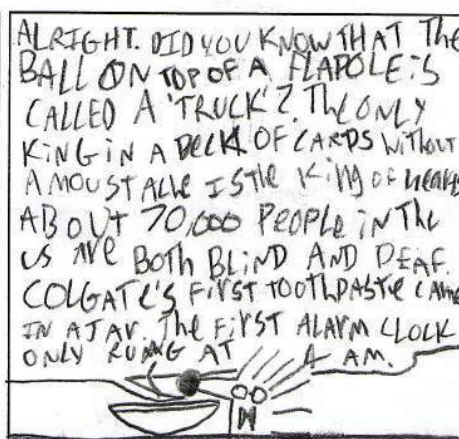 ALRIGHT. DID YOU KNOW THAT The
BALL ON TOP OF A FLAPOLE iS
CALLED A 'TRUCK'? The ONLY
KiNG iN A DECK OF CARDS WiTHOUT
A MOUSTACHE IS the KiNg OF HEARTS
ABOUT 70,000 PEOPLE iN The
US ARE BOTH BLIND AND DEAF.
COLGATE'S FiRST TOOTHPASTE CAME
IN A JAR. The FiRST ALARM CLOCK
ONLY RUNG AT 4 AM.